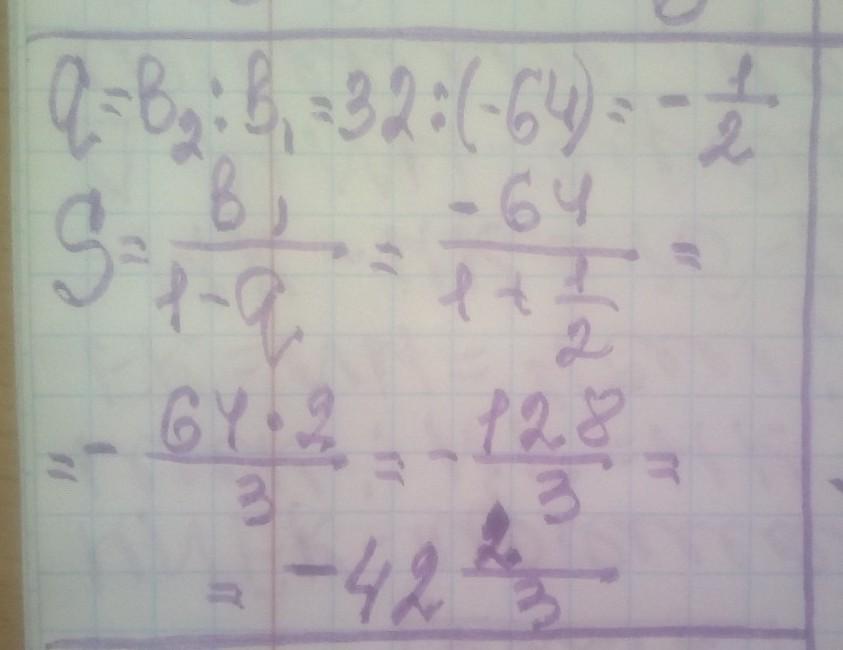 q = b₂ : b₁ = 32 : (-64) = - 1/2
S = b₁/(1-q) = -64/(1 + 1/2) =
= - 64·2/3 = - 128/3 =
= -42 2/3